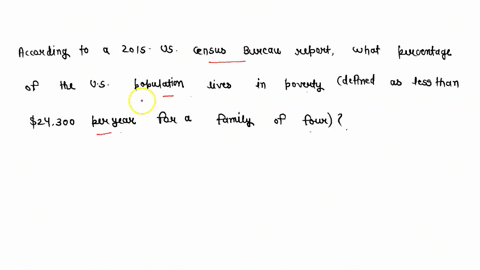 According to a 2015. U.S. Census Bureau report, what percentage
of the U.S. population lives in poverty (defined as less than
$24,300 per year for a family of four)?